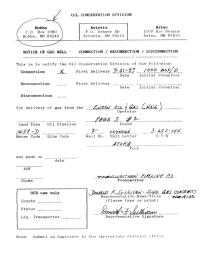 OIL CONSERVATION DIVISION
Hobbs
P.O. Box 1980
Hobbs, NM 88240
Artesia
P.O. Drawer DD
Artesia, NM 88210
Aztec
1000 Rio Brazos
Aztec, NM 87410
NOTICE OF GAS WELL - CONNECTION / RECONNECTION / DISCONNECTION
This is to notify the Oil Conservation Division of the following:
Connection X First Delivery
Date Initial Potential
Reconnection First Delivery
Date Initial Potential
Disconnection
for delivery of gas from the
Operator
PAGE 3
Lease
Land Type Oil Pipeline
Meter Code Site Code Well No. Unit Letter S-T-R
ATOKA
Pool
was made on
date
AOF
Choke
TRANSWESTERN PIPELINE CO.
Transporter
OCD use only
County
Status
Liq. Transporter
Representative Name/Title
(Please type or print)
Representative Signature
Note: Submit in duplicate to the appropriate district office